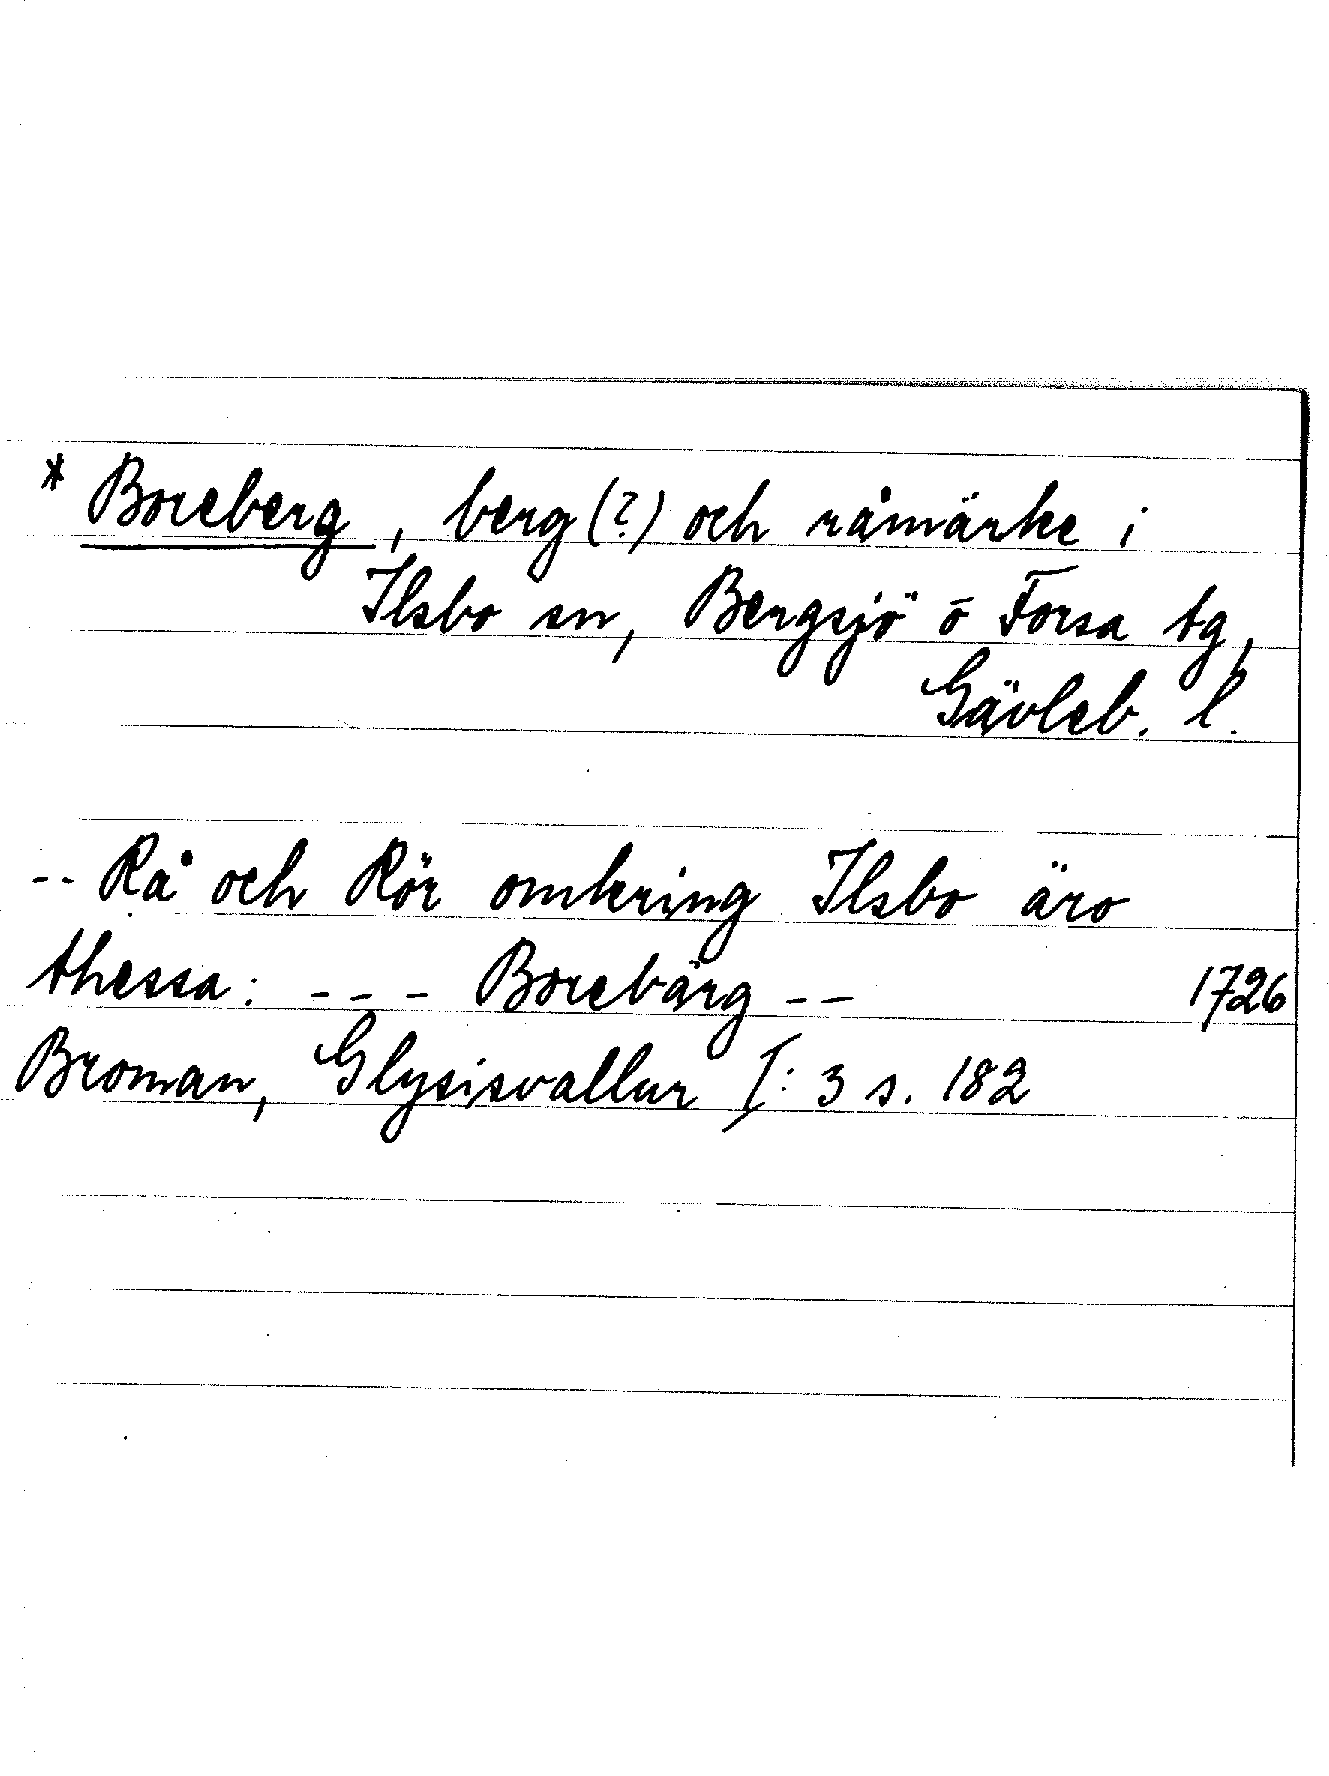 * Boreberg, berg (?) och råmärke i
Ilsbo sn, Bergsjö o Forsa tg,
Gävleb. l.
-- Rå och Rör omkring Ilsbo äro
thessa: --- Borebärg -- 1726
Broman, Glysisvallur I: 3 s. 182